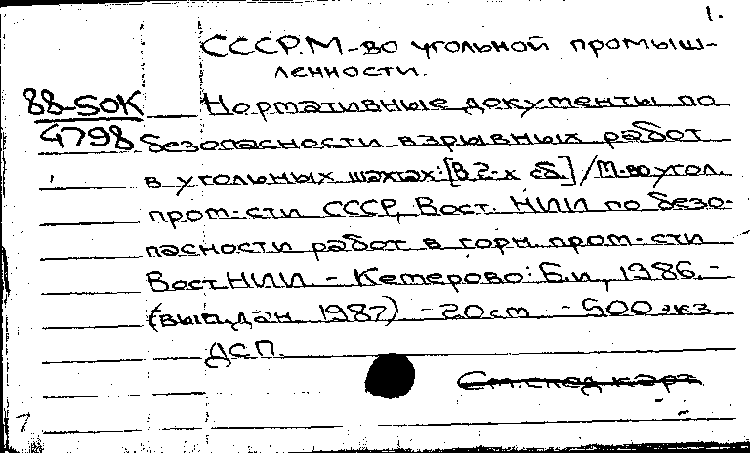 1.
СССР. М-во угольной промыш-
ленности.
88-50К Нормативные документы по
4798 безопасности взрывных работ
в угольных шахтах: [В 2-х сб.] / М-во угол.
пром-сти СССР, Вост. НИИ по безо-
пасности работ в горн. пром-сти
ВостНИИ - Кемерово: Б.и., 1986. -
(вып. дан. 1987) - 20 см - 500 экз
ДСП.
См. след карт